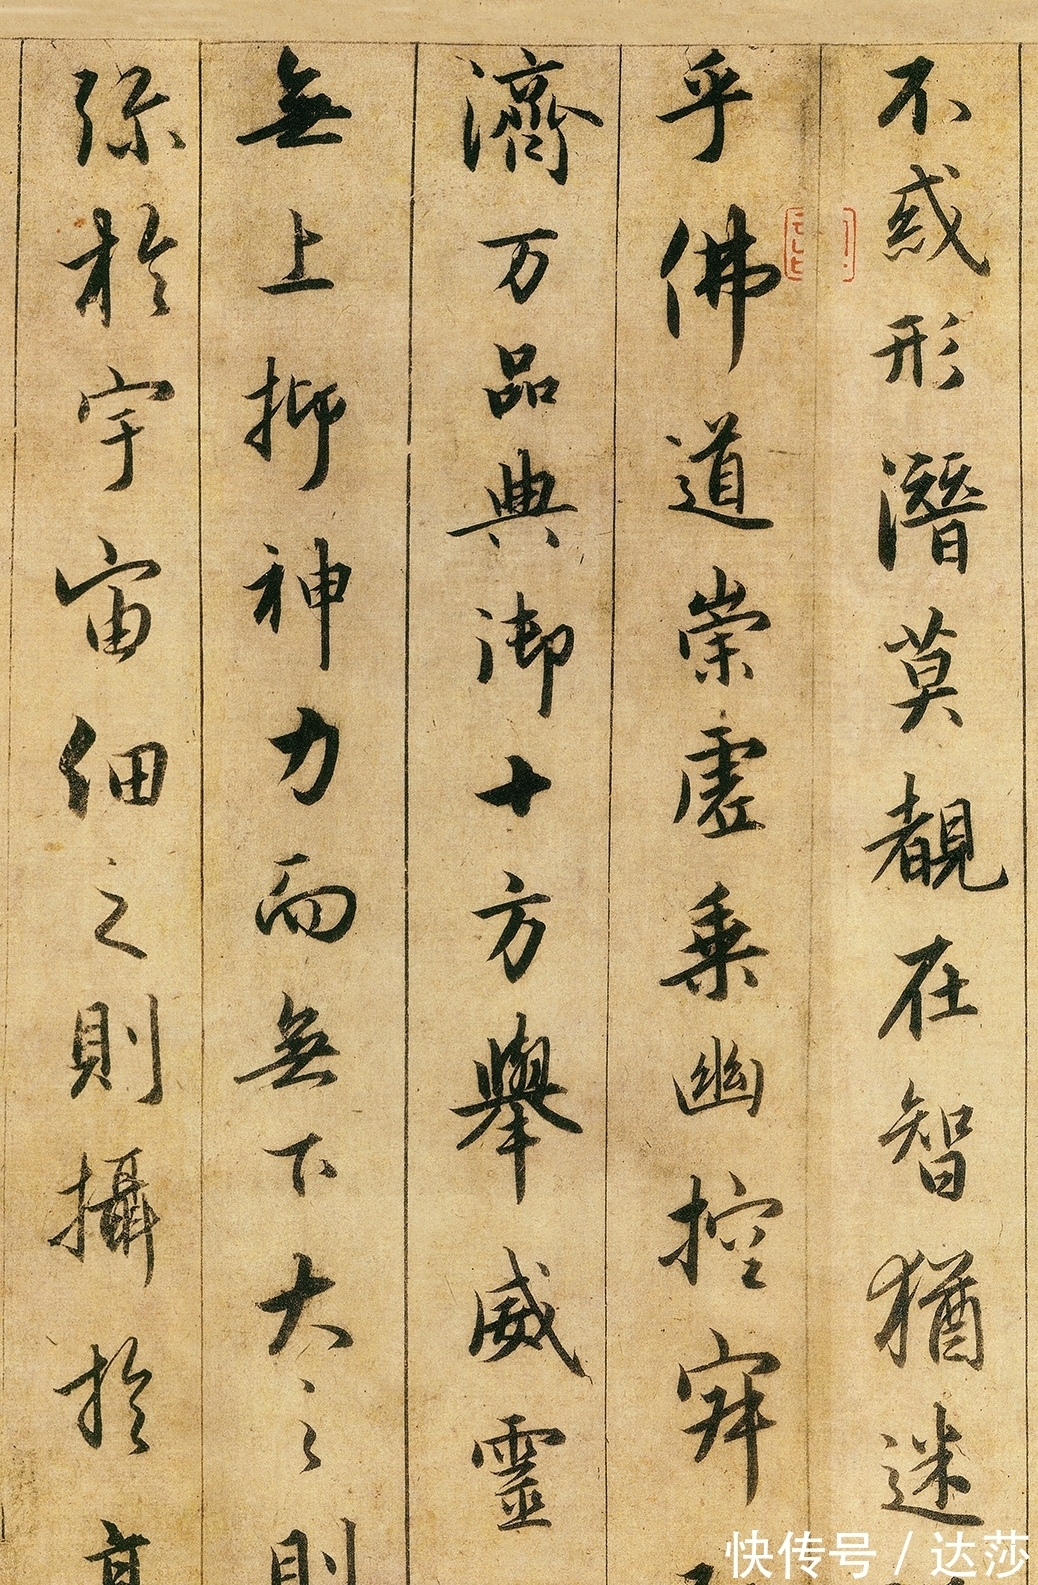 不惑形潛莫覩在智猶迷
乎佛道崇虛乗幽控寂
濟万品典御十方舉威靈
無上抑神力而無下大之則
弥於宇宙細之則攝於
快传号 / 达莎